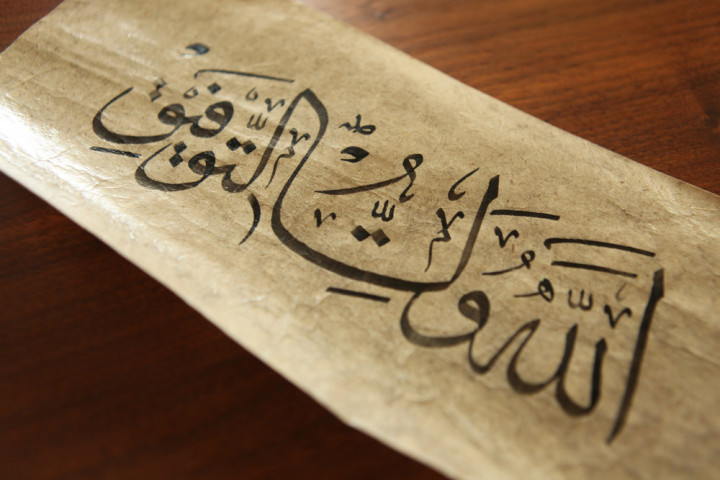 اللَّهُ وَلِيُّ التَّوْفِيقِ